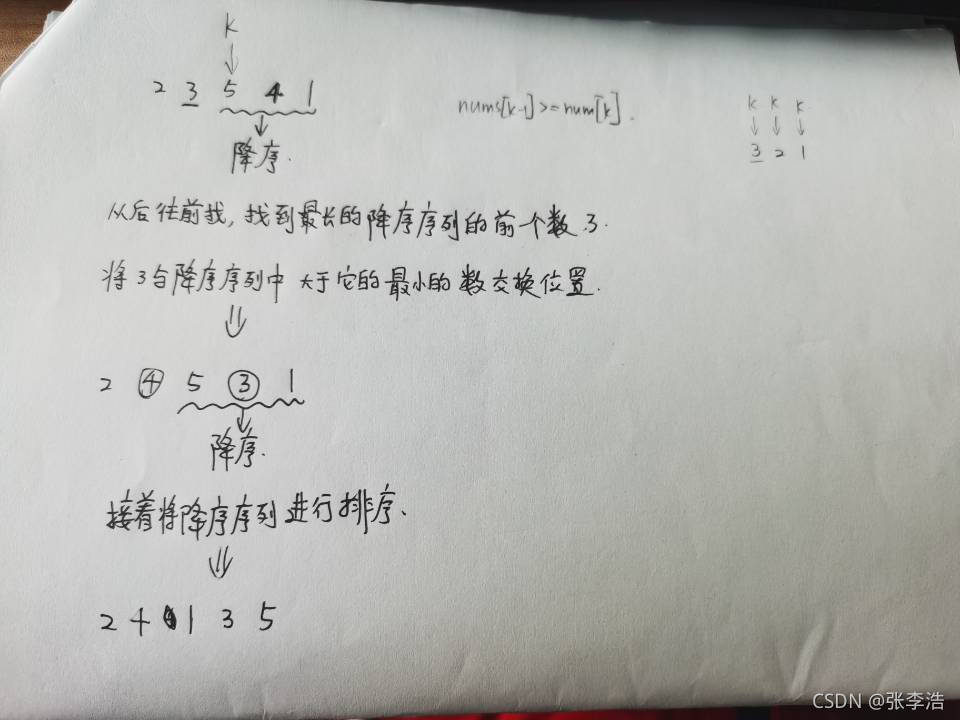 k
2 3 5 4 1
降序.
nums[k-1]>=num[k].
k k k
3 2 1
从后往前找,找到最长的降序序列的前个数3.
将3与降序序列中大于它的最小的数交换位置.
2 4 5 3 1
降序.
接着将降序序列进行排序、
2 4 1 3 5
CSDN @张李浩